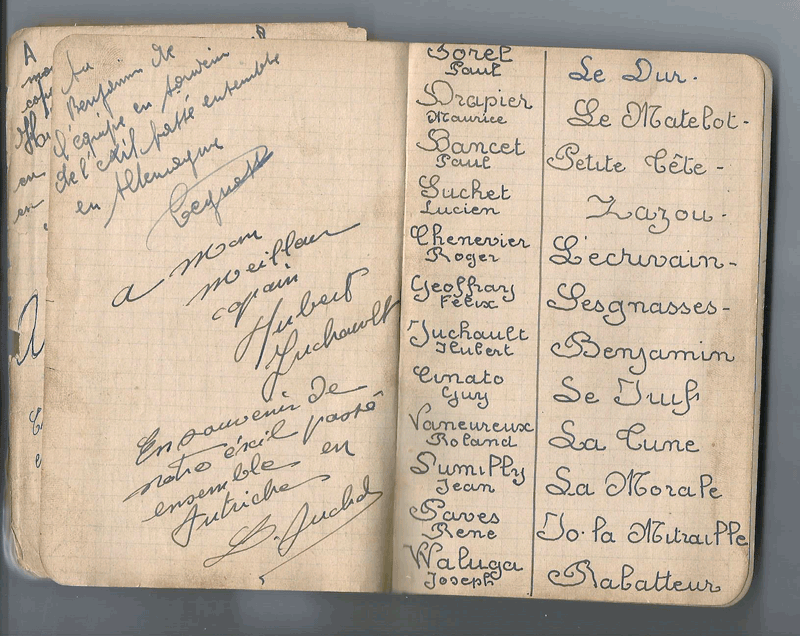 A
Au
Benjamin de
l'équipe en souvein
de l'éxil passé ensemble
en Allemagne
a mon
meilleur
copain
Hubert
Juchault
En souvenir de
notre éxil passé
ensemble en
Autriche
L. Suchet
Borel Paul Le Dur.
Drapier Maurice Le Matelot-
Bancet Paul Petite Tête-
Suchet Lucien Zazou-
Chenevier Roger L'écrivain-
Geoffray Félix Lesgnasses-
Juchault Hubert Benjamin
Cinato Guy Le Juif
Vaneureux Roland La Tune
Dumilly Jean La Morale
Paves René Jo. la Mitraille
Waluga Joseph Rabatteur